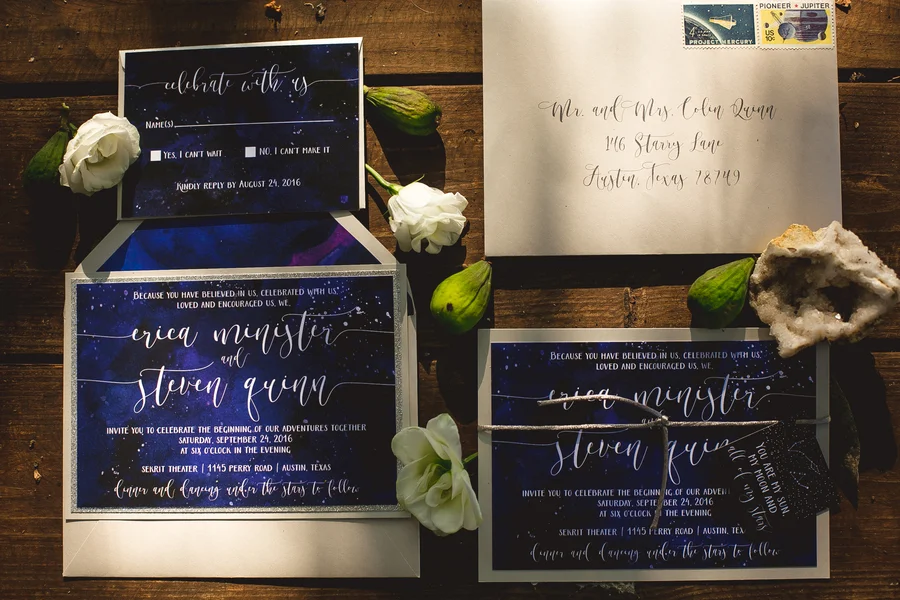 celebrate with us
Name(s)
Yes, I can't wait
No, I can't make it
Kindly reply by August 24, 2016
PROJECT MERCURY
4¢
PIONEER ★ JUPITER
US
10c
Mr. and Mrs. Colin Quinn
146 Starry Lane
Austin, Texas 78749
Because you have believed in us, celebrated with us,
loved and encouraged us, we,
erica minister
and
steven quinn
invite you to celebrate the beginning of our adventures together
Saturday, September 24, 2016
at six o'clock in the evening
Sekrit Theater | 1145 Perry Road | Austin, Texas
dinner and dancing under the stars to follow
Because you have believed in us, celebrated with us,
loved and encouraged us, we,
erica minister
steven quinn
invite you to celebrate the beginning of our advent
Saturday, September 24, 2016
at six o'clock in the evening
Sekrit Theater | 1145 Perry Road | Austin, Tex
dinner and dancing under the stars to follow
You are my sun,
my moon and
all of my stars